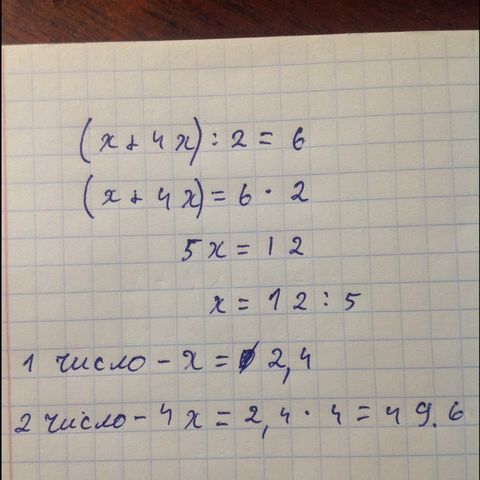 (x + 4x) : 2 = 6
(x + 4x) = 6 · 2
5x = 12
x = 12 : 5
1 число - x = 2,4
2 число - 4x = 2,4 · 4 = 49.6